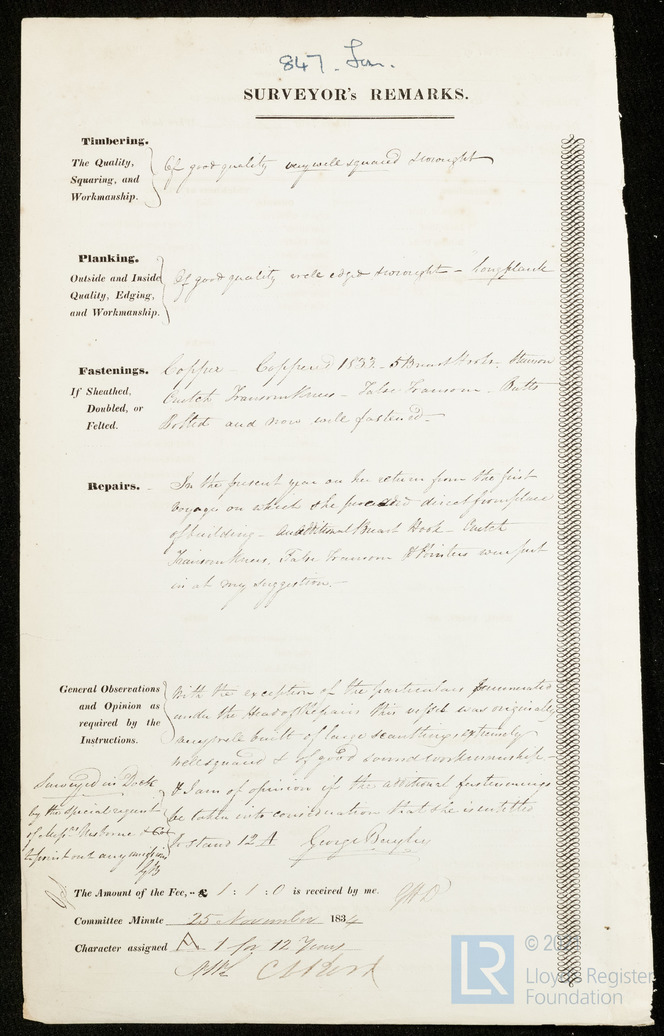 847. Lon.
SURVEYOR's REMARKS.
Timbering.
The Quality,
Squaring, and
Workmanship.
Of good quality very well squared & wrought
Planking.
Outside and Inside
Quality, Edging,
and Workmanship.
Of good quality well edged & wrought - long plank
Fastenings.
If Sheathed,
Doubled, or
Felted.
Copper - Coppered 1833 - 5 Breast Hooks -
Crutch Transom Knees - False Transom. Butts
Bolted and now well fastened -
Repairs.
In the present year on her return from the first
Voyage on which she proceeded direct from place
of building - an additional Breast Hook - Crutch
Transom Knees, False Transom & Pointers were put
in at my suggestion. -
General Observations
and Opinion as
required by the
Instructions.
With the exception of the particulars enumerated
under the Head of Repairs this vessel was originally
a very well built of large scantlings extremely
well squared & of good sound workmanship -
& I am of opinion if the additional fastenings
be taken into consideration that she is entitled
to stand 12 A George Bayley
Surveyed in Dock
by the special request
of Messrs Usborne & Co
to point out any
GB
The Amount of the Fee, - - £ 1 : 1 : 0 is received by me.
Committee Minute 25 November 1834
Character assigned A 1 for 12 Years
LR
© 20
Lloyd's Register
Foundation